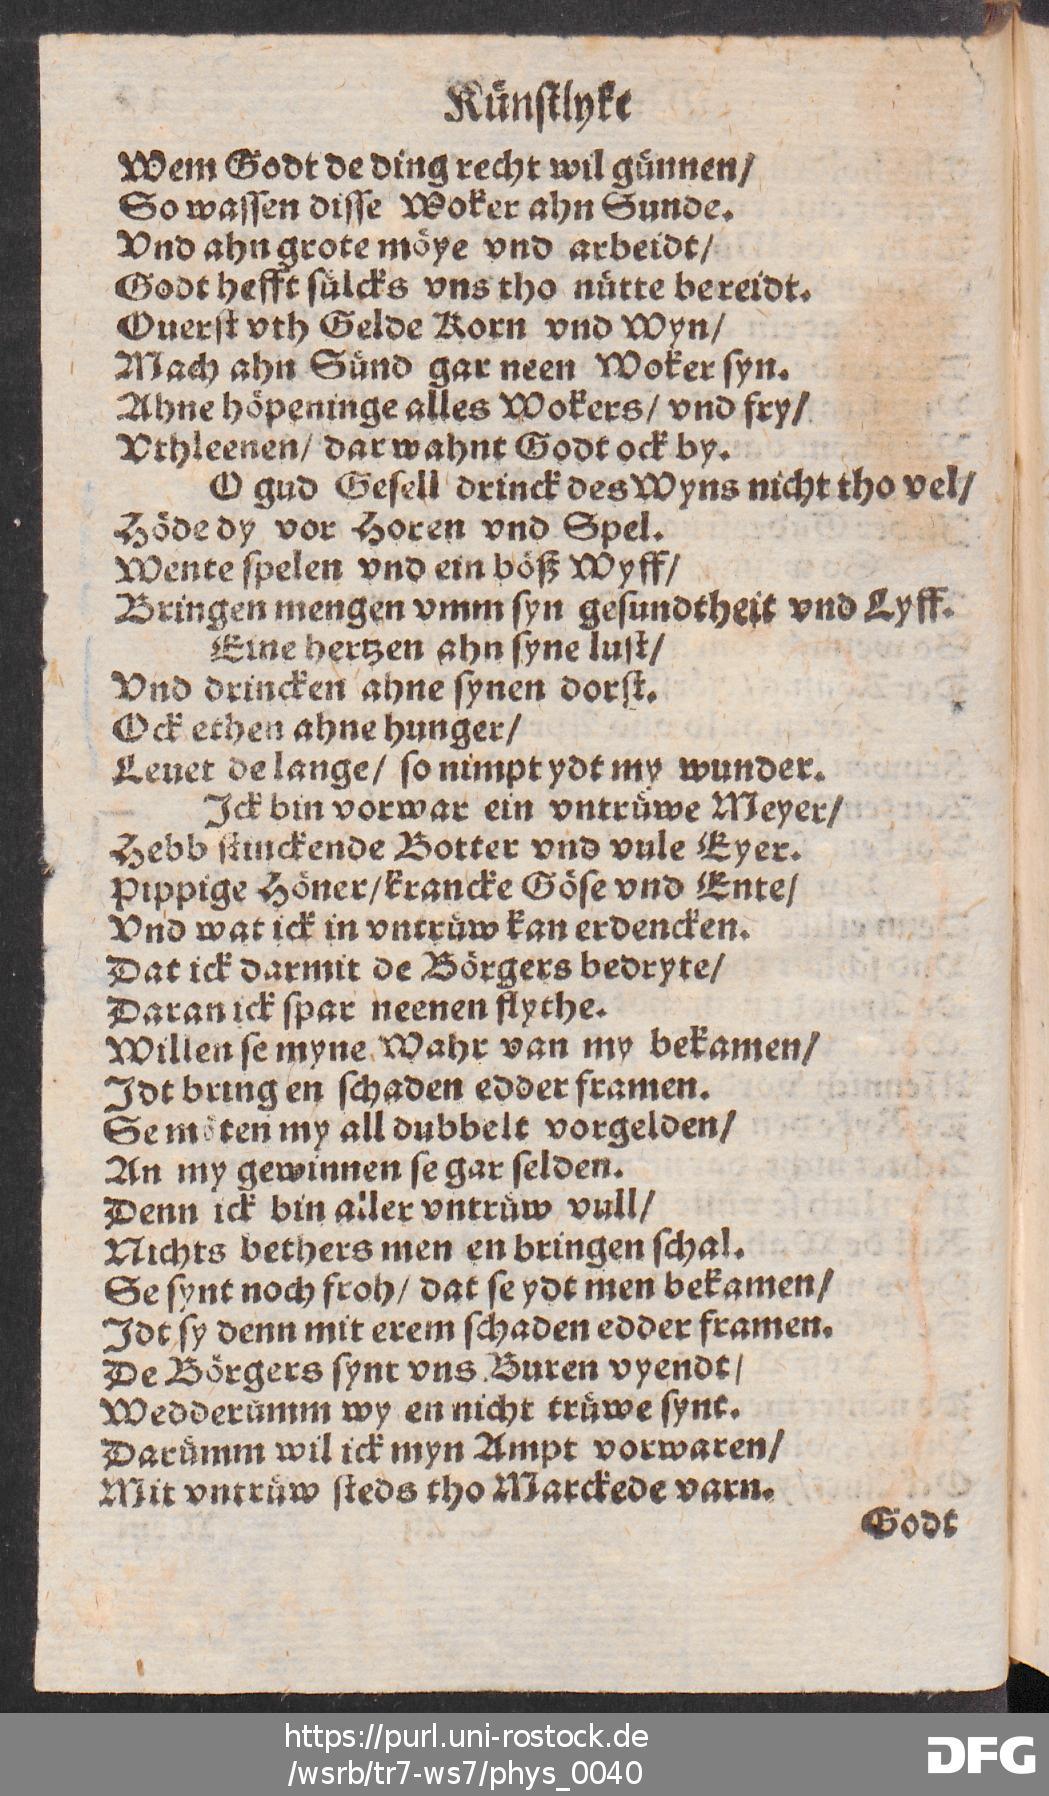 Kuͤnstlyke
Wem Godt de ding recht wil guͤnnen/
So wassen disse Woker ahn Sunde.
Vnd ahn grote moͤye vnd arbeidt/
Godt hefft suͤlcks vns tho nuͤtte bereidt.
Ouerst vth Gelde Korn vnd Wyn/
Mach ahn Suͤnd gar neen Woker syn.
Ahne hoͤpeninge alles Wokers/ vnd fry/
Vthleenen/ dar wahnt Godt ock by.
O gud Gesell drinck des Wyns nicht tho vel/
Hoͤde dy vor Horen vnd Spel.
Wente spelen vnd ein boͤß Wyff/
Bringen mengen vmm syn gesundtheit vnd Lyff.
Eine hertzen ahn syne lust/
Vnd drincken ahne synen dorst.
Ock ethen ahne hunger/
Leuet de lange/ so nimpt ydt my wunder.
Ick bin vorwar ein vntruͤwe Meyer/
Hebb stinckende Botter vnd vule Eyer.
Pippige Hoͤner/ krancke Goͤse vnd Ente/
Vnd wat ick in vntruͤw kan erdencken.
Dat ick darmit de Boͤrgers bedryte/
Daran ick spar neenen flythe.
Willen se myne Wahr van my bekamen/
Idt bring en schaden edder framen.
Se moͤten my all dubbelt vorgelden/
An my gewinnen se gar selden.
Denn ick bin aller vntruͤw vull/
Nichts bethers men en bringen schal.
Se synt noch froh/ dat se ydt men bekamen/
Idt sy denn mit erem schaden edder framen.
De Boͤrgers synt vns Buren vyendt/
Wedderuͤmm wy en nicht truͤwe synt.
Daruͤmm wil ick myn Ampt vorwaren/
Mit vntruͤw steds tho Marckede varn.
Godt
https://purl.uni-rostock.de
/wsrb/tr7-ws7/phys_0040
DFG